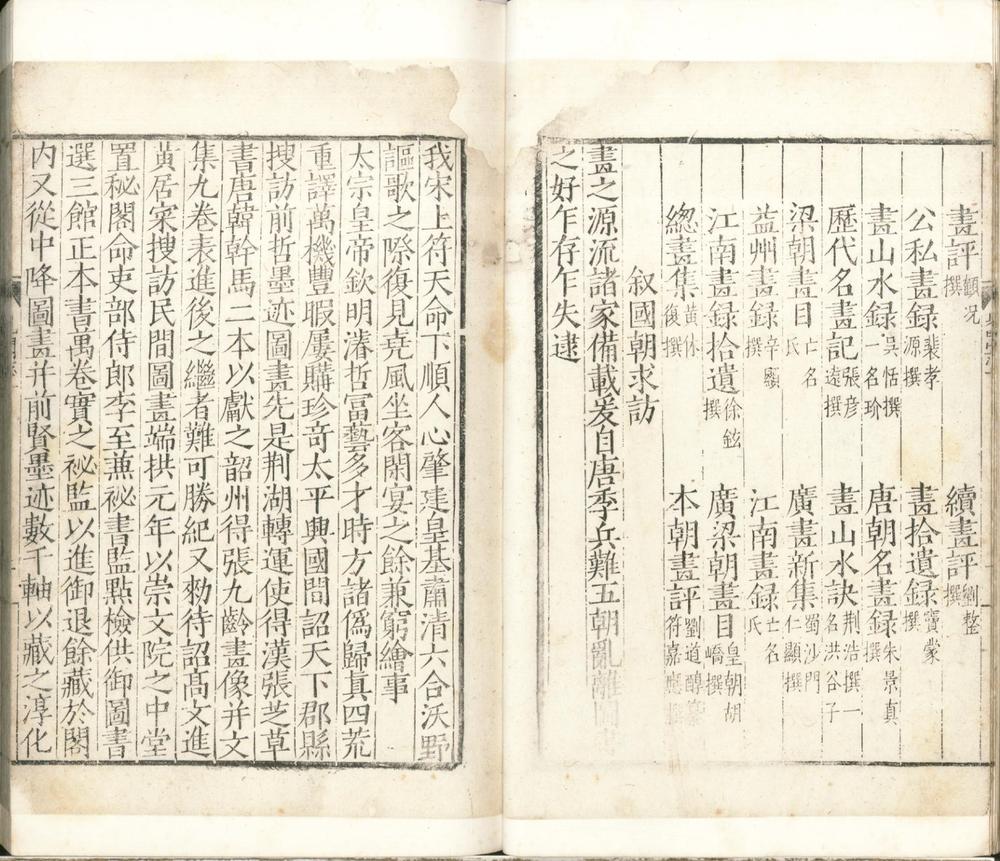 畫評顧况撰　續畫評劉整撰
公私畫録裴孝源撰　畫拾遺録竇蒙撰
畫山水録吳恬撰一名玢　唐朝名畫録朱景真撰
歷代名畫記張彦遠撰　畫山水訣荆浩撰一名洪谷子
梁朝畫目亡名氏　廣畫新集蜀沙門仁顯撰
益州畫録辛顯撰　江南畫録亡名氏
江南畫録拾遺徐鉉撰　廣梁朝畫目皇朝胡嶠撰
緫畫集黃休復撰　本朝畫評劉道醇纂符嘉應撰
叙國朝求訪
畫之源流諸家備載爰自唐季兵難五朝亂離
之好乍存乍失逮
我宋上符天命下順人心肇建皇基肅清六合沃野
謳歌之際復見堯風坐客閑宴之餘兼窮繪事
太宗皇帝欽明濬哲富藝多才時方諸僞歸真四荒
重譯萬機豐暇屢購珍奇太平興國間詔天下郡縣
搜訪前哲墨迹圖畫先是荆湖轉運使得漢張芝草
書唐韓幹馬二本以獻之韶州得張九齡畫像并文
集九卷表進後之繼者難可勝紀又勑待詔髙文進
黃居寀搜訪民間圖畫端拱元年以崇文院之中堂
置秘閣命吏部侍郎李至兼祕書監點檢供御圖書
選三館正本書萬卷實之祕監以進御退餘藏於閣
内又從中降圖畫并前賢墨迹數千軸以藏之淳化